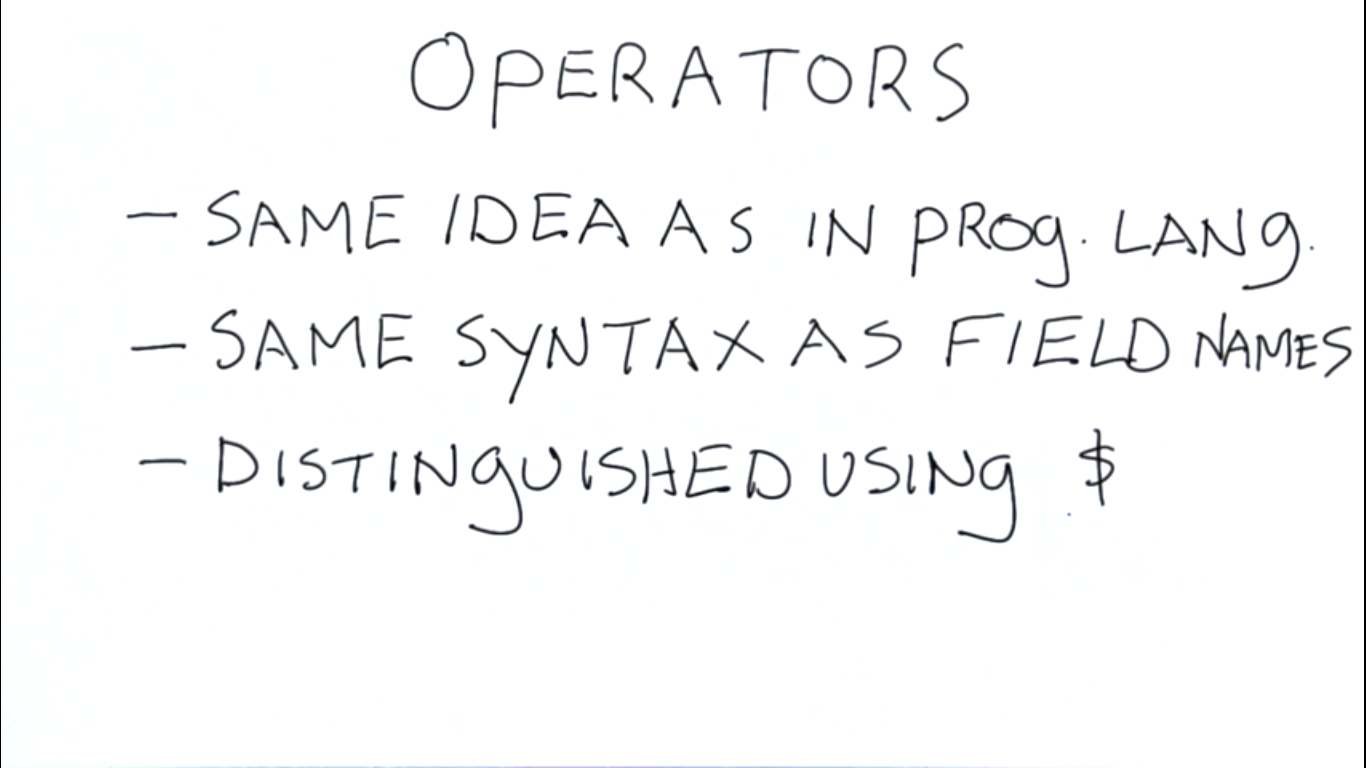 OPERATORS
- SAME IDEA AS IN PROG. LANG.
- SAME SYNTAX AS FIELD NAMES
- DISTINGUISHED USING $